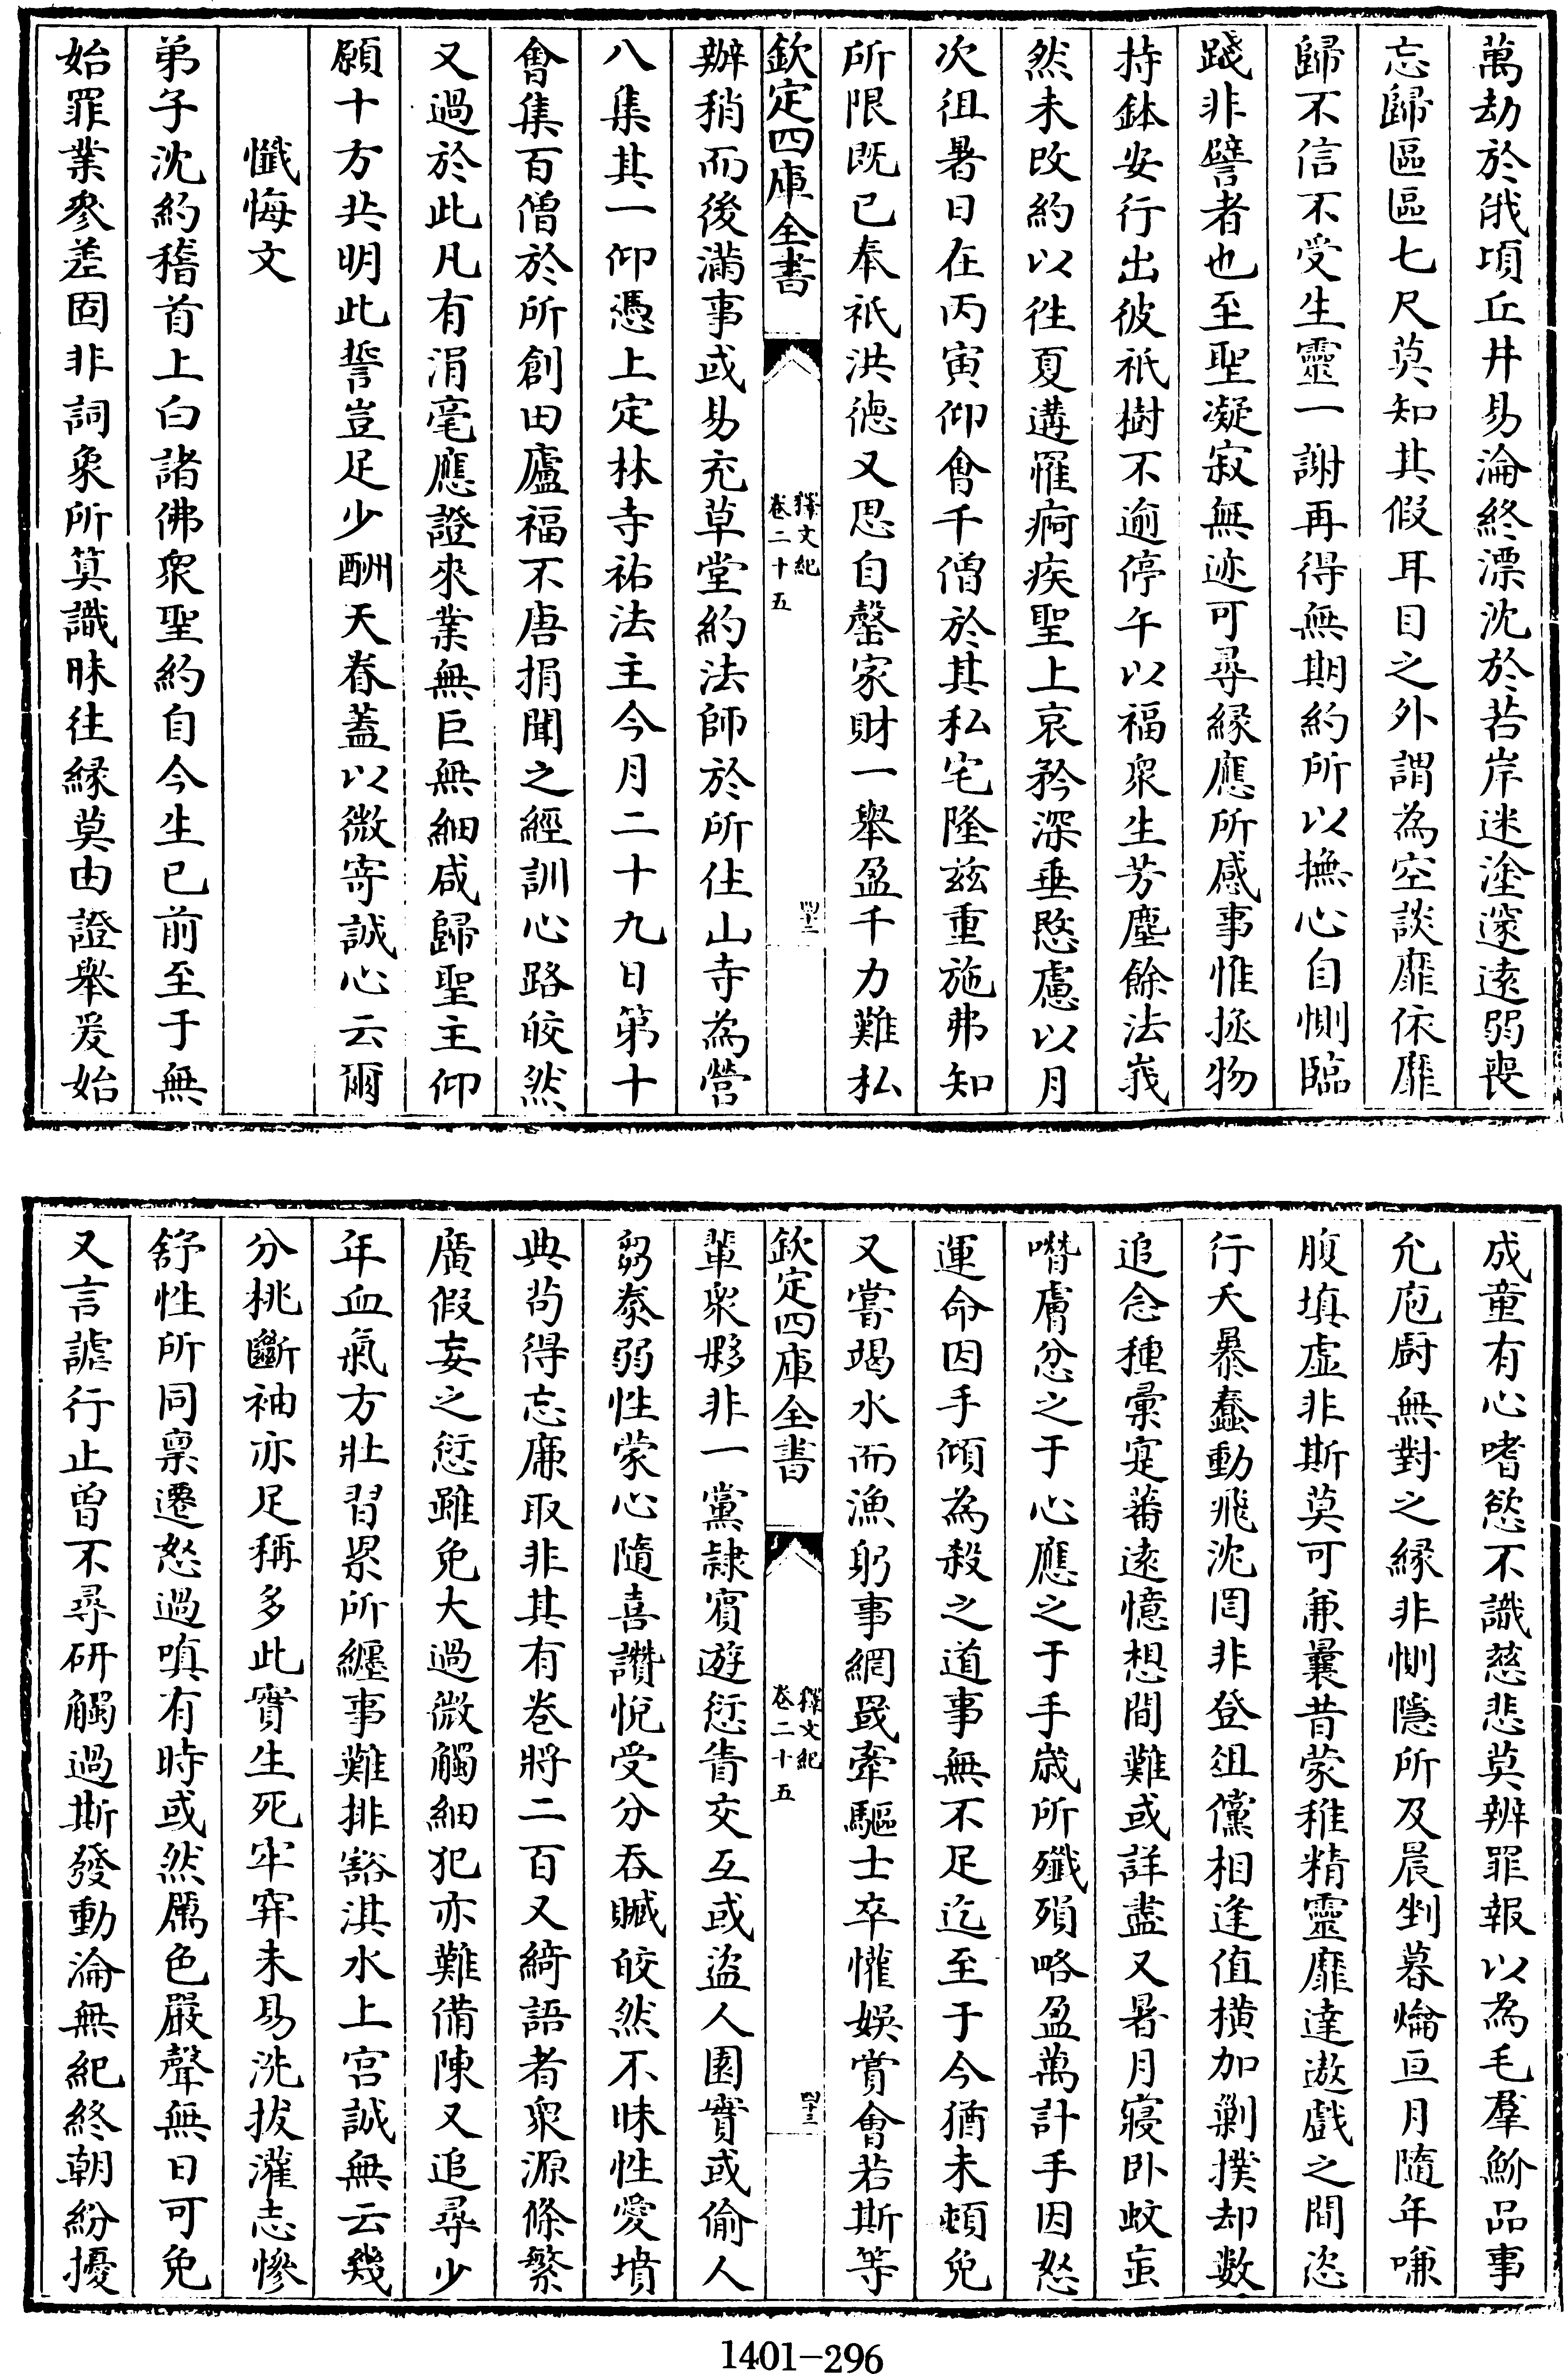 萬劫於俄頃丘井易淪終漂沈於苦岸迷塗邃遠弱喪
忘歸區區七尺莫知其假耳目之外謂為空談靡依靡
歸不信不受生靈一謝再得無期約所以撫心自惻臨
踐非譬者也至聖凝寂無迹可尋縁應所感事惟拯物
持鉢安行出彼祇樹不逾停午以福衆生芳塵餘法峩
然未改約以徃夏遘罹痾疾聖上哀矜深垂愍慮以月
次徂暑日在丙寅仰㑹千僧於其私宅隆兹重施弗知
所限既已奉祇洪徳又思自罄家財一舉盈千力難私
欽定四庫全書
釋文紀
卷二十五
四十二
辦稍而後滿事或易充草堂約法師於所住山寺為營
八集其一仰憑上定林寺祐法主今月二十九日第十
㑹集百僧於所創田廬福不唐捐聞之經訓心路皎然
又過於此凡有涓毫應證來業無巨無細咸歸聖主仰
願十方共明此誓豈足少酬天眷蓋以微寄誠心云爾
懺悔文
弟子沈約稽首上白諸佛衆聖約自今生已前至于無
始罪業參差固非詞象所算識昧往縁莫由證舉爰始
成童有心嗜慾不識慈悲莫辨罪報以為毛羣魪品事
允庖厨無對之縁非惻隱所及晨剉暮爚亘月隨年嗛
腹填虚非斯莫可兼曩昔蒙稚精靈靡達遨戲之間恣
行夭暴蠢動飛沈罔非登俎儻相逢值横加剿撲却數
追念種彚寔蕃逺憶想間難或詳盡又暑月寢卧蚊䖟
噆膚忿之于心應之于手歳所殲殞略盈萬計手因怒
運命因手傾為殺之道事無不足迄至于今猶未頓免
又嘗竭水而漁躬事網罟牽驅士卒懽娱賞會若斯等
欽定四庫全書
釋文紀
卷二十五
四十三
輩衆夥非一黨隷賓遊愆眚交互或盜人園實或偷人
芻豢弱性蒙心隨喜讚悅受分吞贓皎然不昧性愛墳
典茍得忘廉取非其有卷將二百又綺語者衆源條繁
廣假妄之愆雖免大過微觸細犯亦難備陳又追尋少
年血氣方壯習累所纏事難排豁淇水上宮誠無云幾
分桃斷袖亦足稱多此實生死牢穽未易洗拔灌志慘
舒性所同禀遷怒過嗔有時或然厲色嚴聲無日可免
又言謔行止曾不尋研觸過斯發動淪無紀終朝紛擾
1401-296